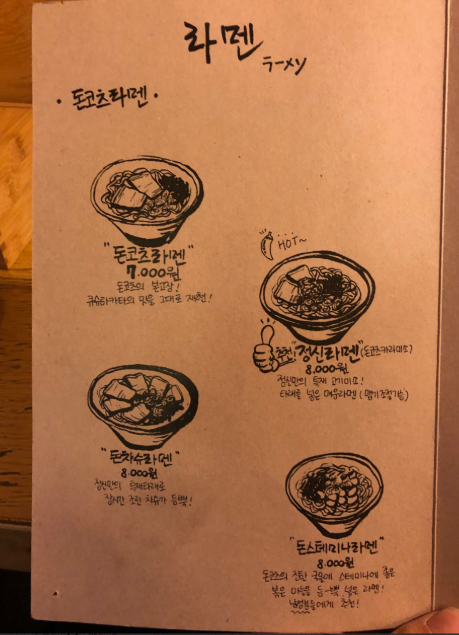 라멘
ラーメン
· 돈코츠라멘 ·
"돈코츠라멘"
7.000원
돈코츠의 본고장!
큐슈하카타의 맛을 그대로 재현!
HOT~
추천 "정신라멘" (돈코츠카라미소)
8.000원
정신만의 특제 고기미소!
타래를 넣은 매운라멘 (맵기조정가능)
"돈차슈라멘"
8.000원
정신만의 특제타래로
장시간 조린 차슈가 듬뿍!
"돈스테미나라멘"
8.000원
돈코츠의 진한 국물에 스테미나에 좋은
볶은 마늘을 듬-뿍 넣은 라멘!
남성분들에게 추천!